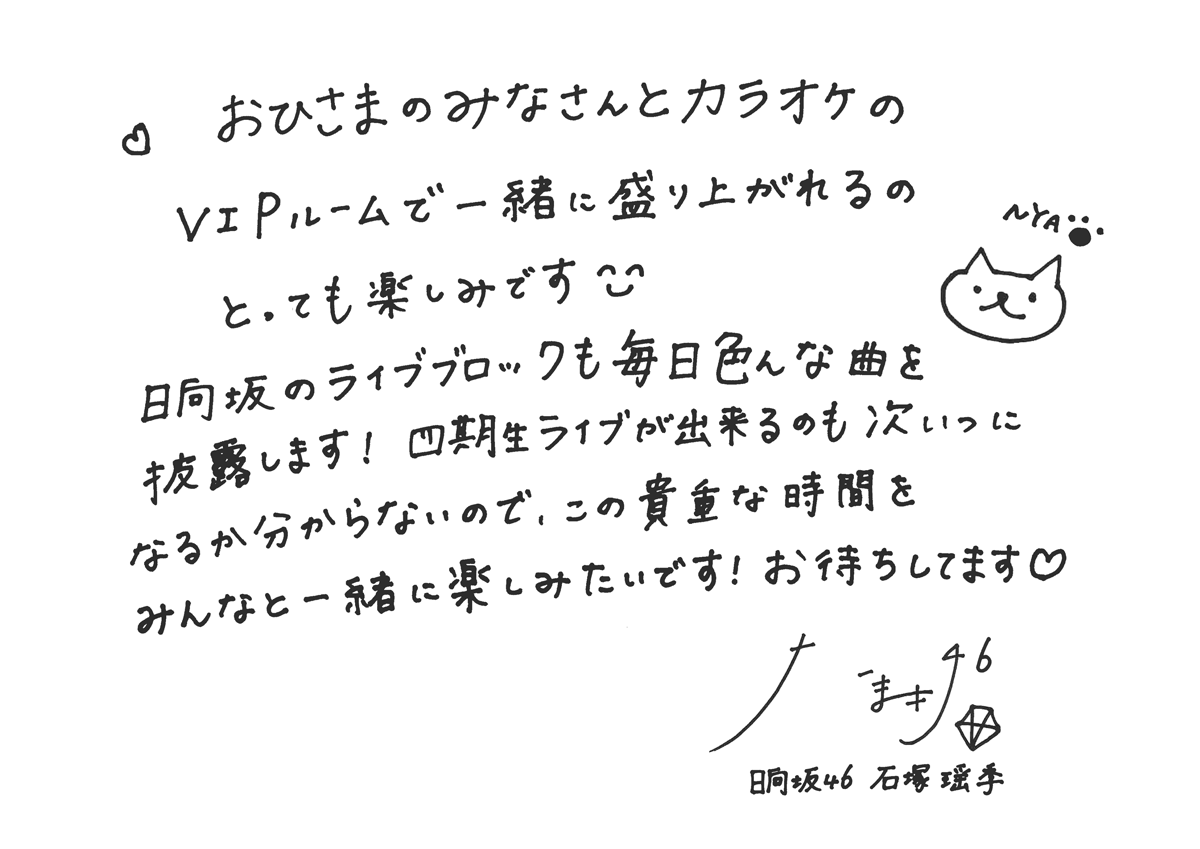 おひさまのみなさんとカラオケの
VIPルームで一緒に盛り上がれるの
とっても楽しみです
NYA
日向坂のライブブロックも毎日色んな曲を
披露します! 四期生ライブが出来るのも次いつに
なるか分からないので、この貴重な時間を
みんなと一緒に楽しみたいです! お待ちしてます♡
46
日向坂46 石塚瑶季